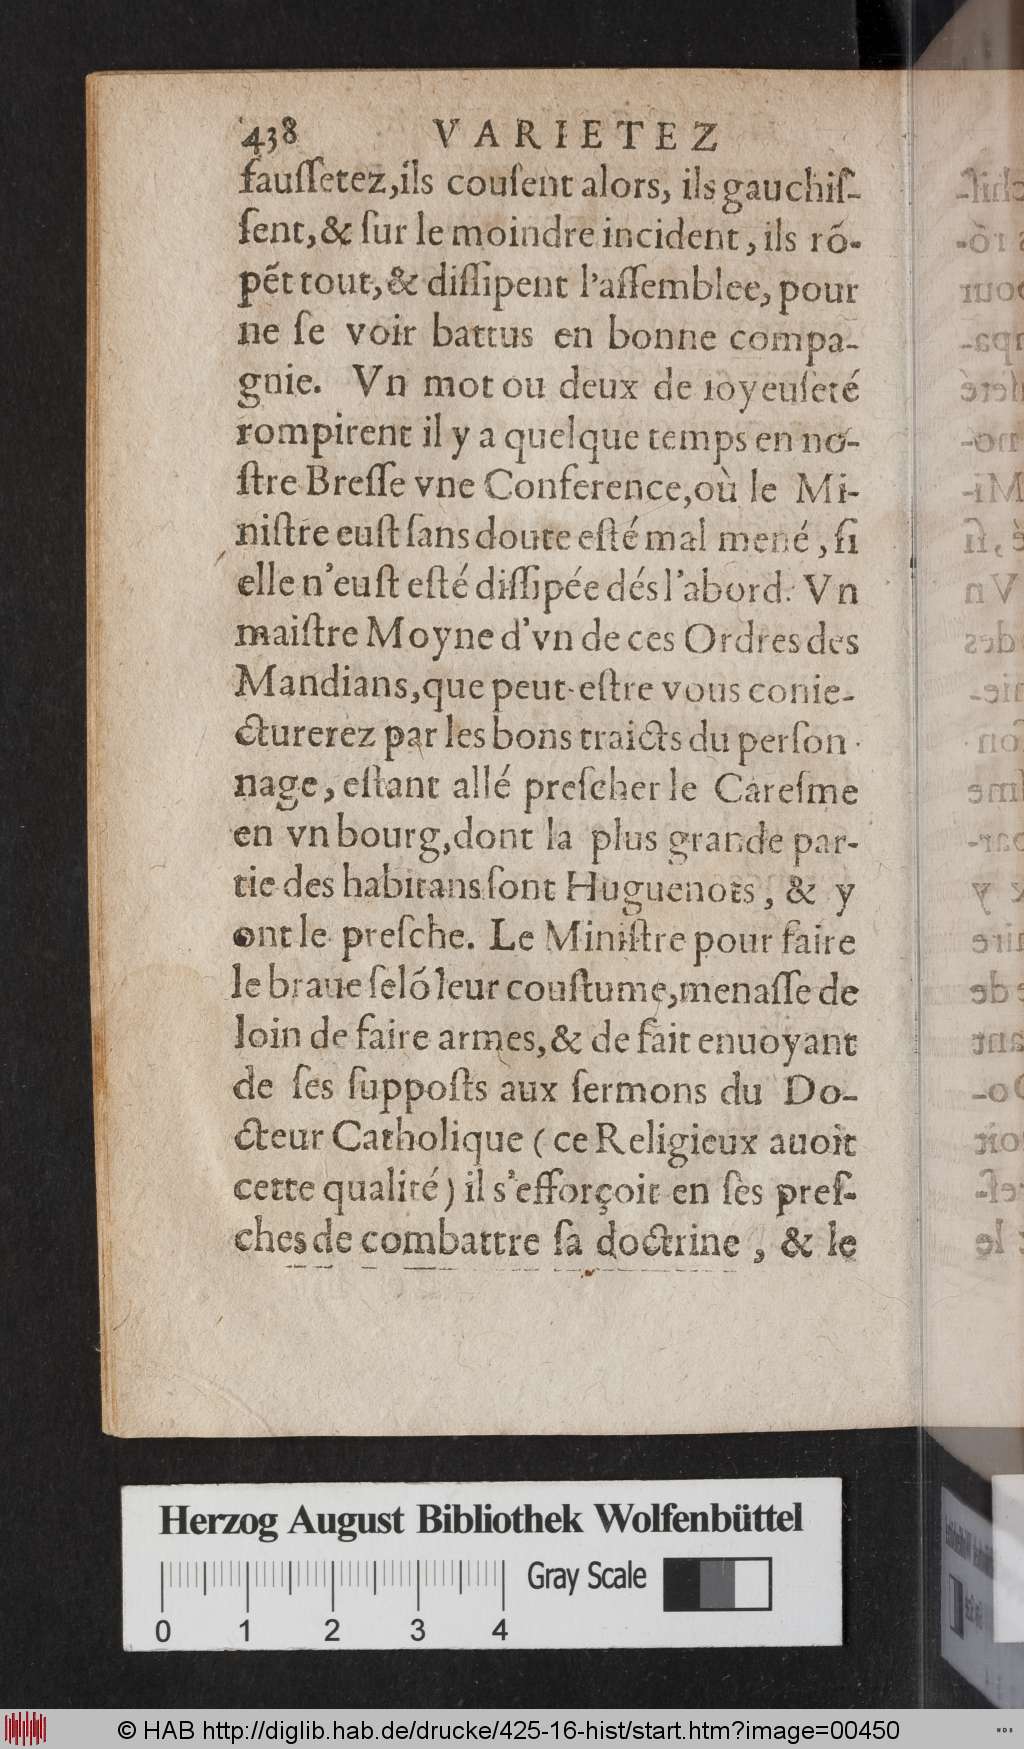 438 VARIETEZ
fauſſetez,ils couſent alors, ils gauchiſ-
ſent,& ſur le moindre incident, ils rõ-
pẽt tout,& diſſipent l'aſſemblee, pour
ne ſe voir battus en bonne compa-
gnie. Vn mot ou deux de ioyeuſeté
rompirent il y a quelque temps en no-
ſtre Breſſe vne Conference,où le Mi-
niſtre euſt ſans doute eſté mal mené, ſi
elle n'euſt eſté diſſipée dés l'abord. Vn
maiſtre Moyne d'vn de ces Ordres des
Mandians,que peut-eſtre vous conie-
cturerez par les bons traicts du perſon-
nage, eſtant allé preſcher le Careſme
en vn bourg,dont la plus grande par-
tie des habitans ſont Huguenots, & y
ont le preſche. Le Miniſtre pour faire
le braue ſelõ leur couſtume,menaſſe de
loin de faire armes,& de fait enuoyant
de ſes ſuppoſts aux ſermons du Do-
cteur Catholique (ce Religieux auoit
cette qualité) il s'efforçoit en ſes preſ-
ches de combattre ſa doctrine, & le
Herzog August Bibliothek Wolfenbüttel
Gray Scale
0 1 2 3 4
© HAB http://diglib.hab.de/drucke/425-16-hist/start.htm?image=00450